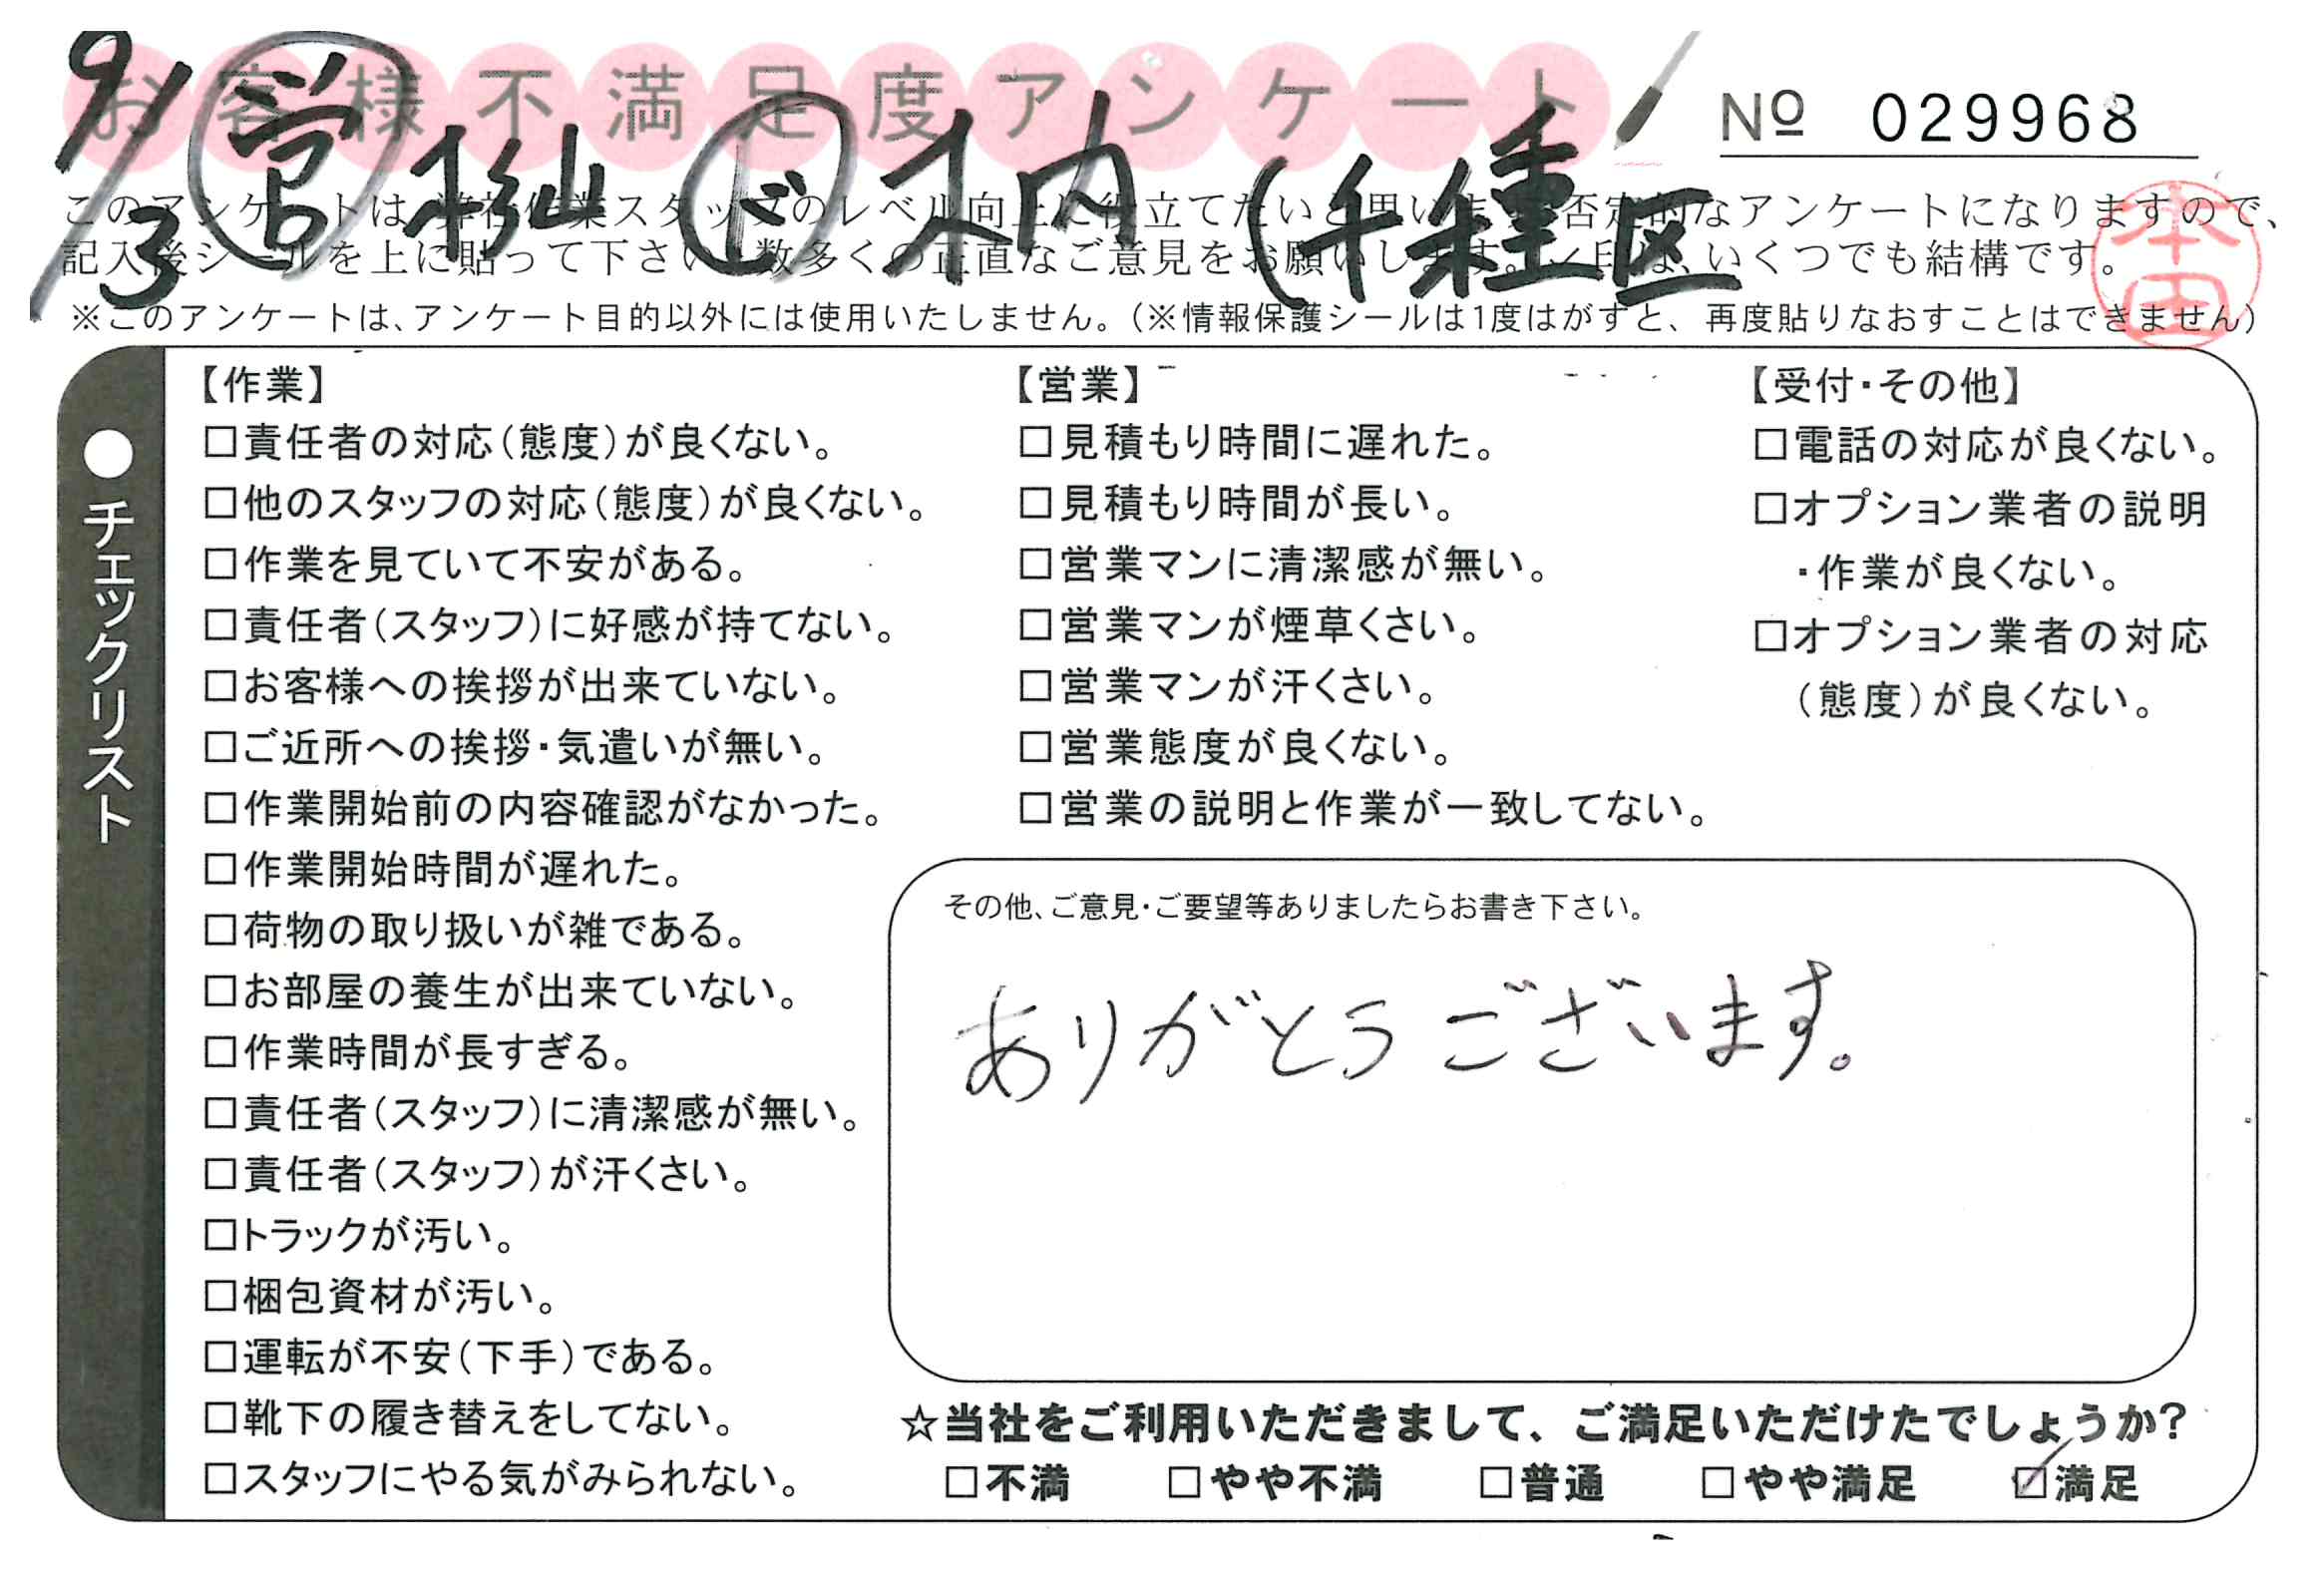 お客様不満足度アンケート
№ 029968
9/3 ㊢ 杉山 ド 木内 (千種区
このアンケートは、弊社作業スタッフのレベル向上に役立てたいと思います。否定的なアンケートになりますので、
記入後シールを上に貼って下さい。数多くの正直なご意見をお願いします。✓印は、いくつでも結構です。
※このアンケートは、アンケート目的以外には使用いたしません。(※情報保護シールは1度はがすと、再度貼りなおすことはできません)
本田
●チェックリスト
【作業】
□責任者の対応(態度)が良くない。
□他のスタッフの対応(態度)が良くない。
□作業を見ていて不安がある。
□責任者(スタッフ)に好感が持てない。
□お客様への挨拶が出来ていない。
□ご近所への挨拶・気遣いが無い。
□作業開始前の内容確認がなかった。
□作業開始時間が遅れた。
□荷物の取り扱いが雑である。
□お部屋の養生が出来ていない。
□作業時間が長すぎる。
□責任者(スタッフ)に清潔感が無い。
□責任者(スタッフ)が汗くさい。
□トラックが汚い。
□梱包資材が汚い。
□運転が不安(下手)である。
□靴下の履き替えをしてない。
□スタッフにやる気がみられない。
【営業】
□見積もり時間に遅れた。
□見積もり時間が長い。
□営業マンに清潔感が無い。
□営業マンが煙草くさい。
□営業マンが汗くさい。
□営業態度が良くない。
□営業の説明と作業が一致してない。
【受付・その他】
□電話の対応が良くない。
□オプション業者の説明
・作業が良くない。
□オプション業者の対応
(態度)が良くない。
その他、ご意見・ご要望等ありましたらお書き下さい。
ありがとうございます。
☆当社をご利用いただきまして、ご満足いただけたでしょうか?
□不満 □やや不満 □普通 □やや満足 ☑満足